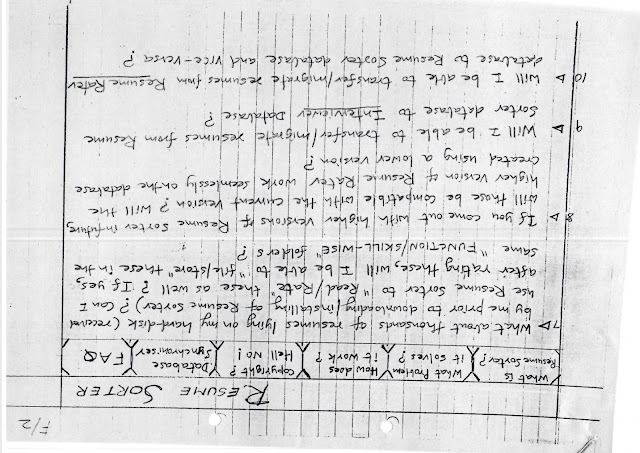 F/2
RESUME SORTER
What is Resume Sorter?
What Problem it solves?
How does it work?
Copyright? Hell No!
Database Synchroniser
FAQ
7 ▷ What about thousands resumes lying on my hard-disk (received
by me prior to downloading/installing of Resume Sorter)? Can I
use Resume Sorter to "Read/Rate" these as well? If yes,
after rating these, will I be able to "file/store" these in the
same "FUNCTION/SKILL-WISE" folders?
8 ▷ If you come out with higher versions of Resume Sorter in future,
will those be compatible with the current version? Will the
higher version of Resume Rater work seemlessly on the database
created using a lower version?
9 ▷ Will I be able to transfer/migrate resumes from Resume
Sorter database to Interviewer Database?
10 ▷ Will I be able to transfer/migrate resumes from Resume Rater
database to Resume Sorter database and vice-versa?